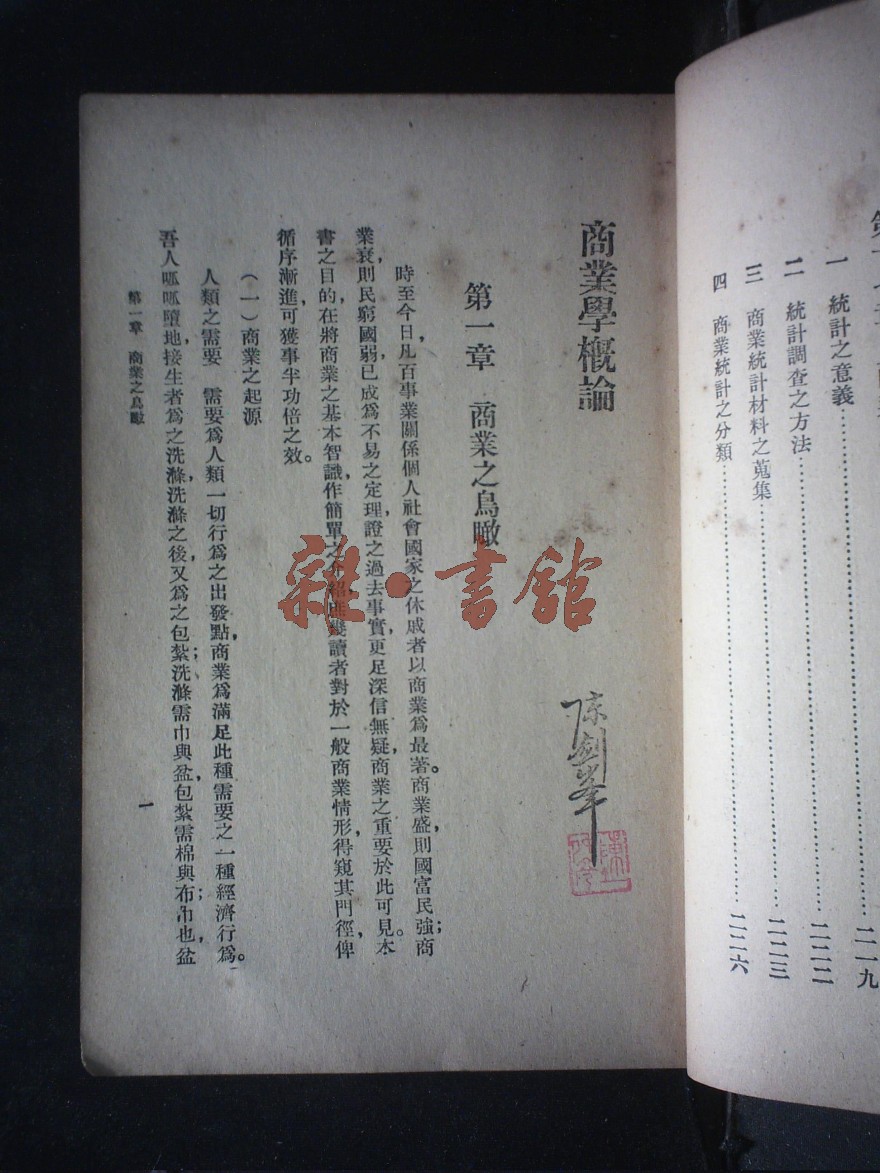 一 統計之意義……二一九
二 統計調查之方法……二二二
三 商業統計材料之蒐集……二二三
四 商業統計之分類……二二六
商業學概論
陳劍峯
第一章 商業之鳥瞰
時至今日，凡百事業關係個人社會國家之休戚者以商業爲最著。商業盛，則國富民強；商
業衰，則民窮國弱，已成爲不易之定理，證之過去事實，更足深信無疑，商業之重要於此可見。本
書之目的，在將商業之基本智識，作簡單之介紹，庶幾讀者對於一般商業情形，得窺其門徑，俾
循序漸進，可獲事半功倍之效。
（一）商業之起源
人類之需要 需要爲人類一切行爲之出發點，商業爲滿足此種需要之一種經濟行爲。
吾人呱呱墮地，接生者爲之洗滌，洗滌之後，又爲之包紮；洗滌需巾與盆，包紮需棉與布；巾也，盆
第一章 商業之鳥瞰
一
雜·書館